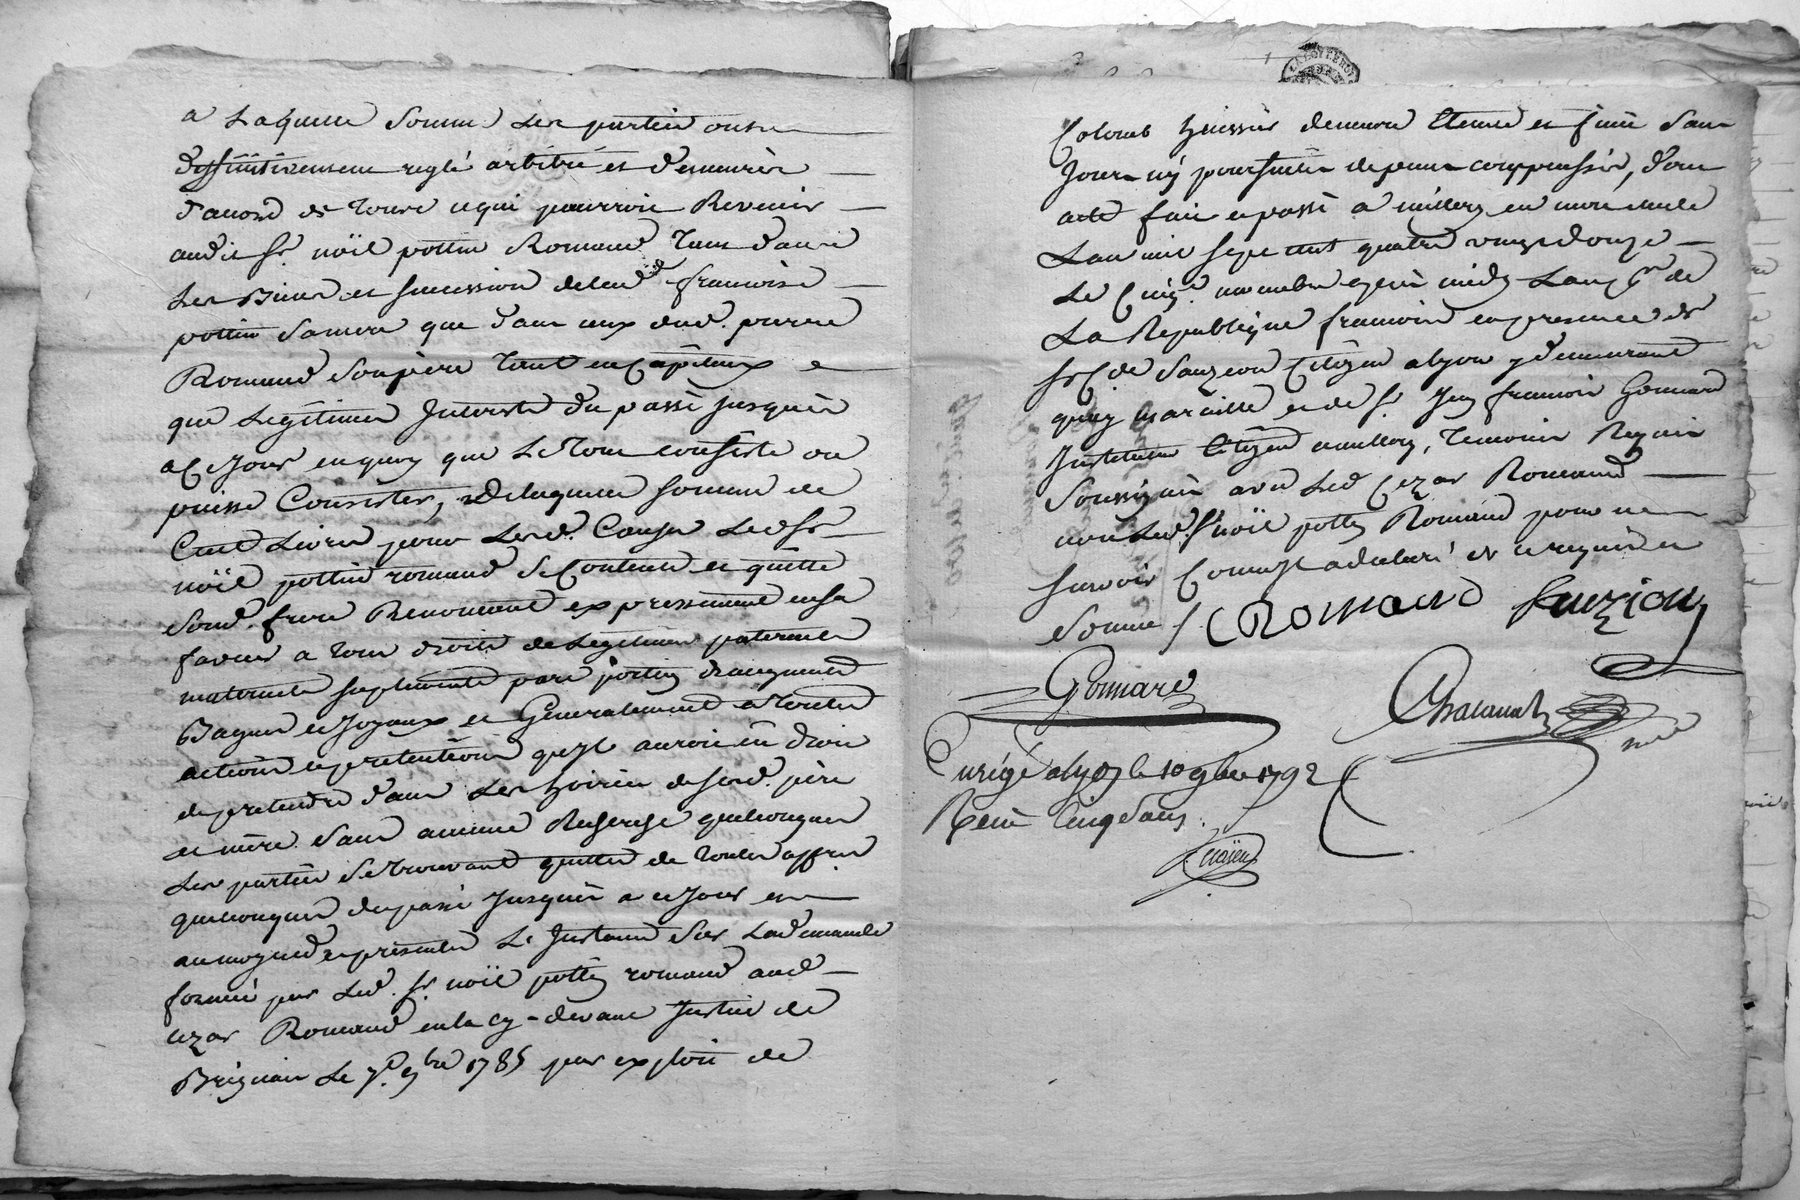 a Laquelle Somme Les parties ont
deffinitivement reglé arbitré et demeurées
d'accord de Tout ce qui pourroit Revenir
audit Sr. nöel pottin Romand Tant dans
Les Biens et succession de lad. francoise
pottin Sa mere que dans ceux dud. pierre
Romand Son père Tant en Capitaux
que Légitimes Interets du passé jusques
a Ce Jour en quoy que Le Tout consiste ou
puisse Consister, de laquelle somme de
Cent Livres pour Lesd. Causes Led. Sr
nöel pottin romand Se Contente et quitte
Sond. frere Renoncant expressement en sa
faveur a tous droits de Legitime paternels
maternels suplement part portion d'augment
Bagues et Joyaux et Generalement a Toutes
actions et pretentions qu'il auroit eu droit
de pretendre dans Les hoiries de sesd. père
et mère Sans aucune Reserve quelconque
Les parties Se trouvant quittes de Toutes affaires
quelconques du passé Jusques a ce Jour
au moyen des presentes L'Instance Sur La demande
formée par Led. Sr. nöel pottin romand aud.
cezar Romand en la cy-devant Justice de
Brignais Le 7e. 9bre 1785 par exploit de
Colomb huissier demeure Eteinte et finie Sans
pouvoir y poursuivre depens compensés, dont
acte fait et passé a millery en mon etude
L'an mil sept cent quatre vingt douze
Le Cinq. novembre apres midy L'an 1er de
La Republique francoise en presence de
Sr C. de Sauzion Citoyen a lyon y demeurant
quay et de Sr. Jean francois Gonnard
Instituteur Citoyen a millery, Temoins Requis
Soussignés avec Led. Cezar Romand
non Led. Sr nöel pottin Romand pour ne
Scavoir Comme il a declaré de ce requis et
Sommé / Romand Sauzion
Gonnard
Chatanat
Enrégé a lyon le 10 9bre 1792
Reçu Cinq Sous.